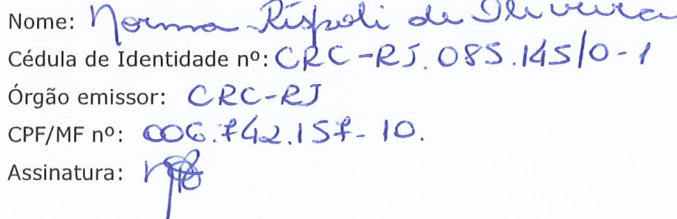 Nome: Norma Rispoli de Oliveira
Cédula de Identidade nº: CRC-RJ.085.145/0-1
Órgão emissor: CRC-RJ
CPF/MF nº: 006.742.157-10.
Assinatura: